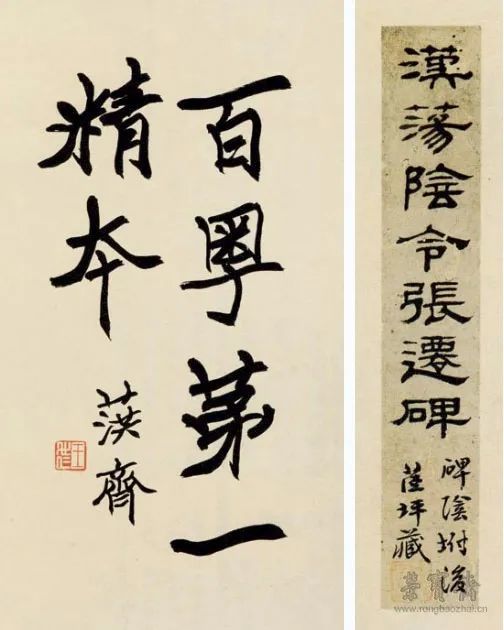 百粤第一
精本
齊
漢蕩陰令張遷碑
碑陰坿後
坪藏
榮寶齋
www.rongbaozhai.cn